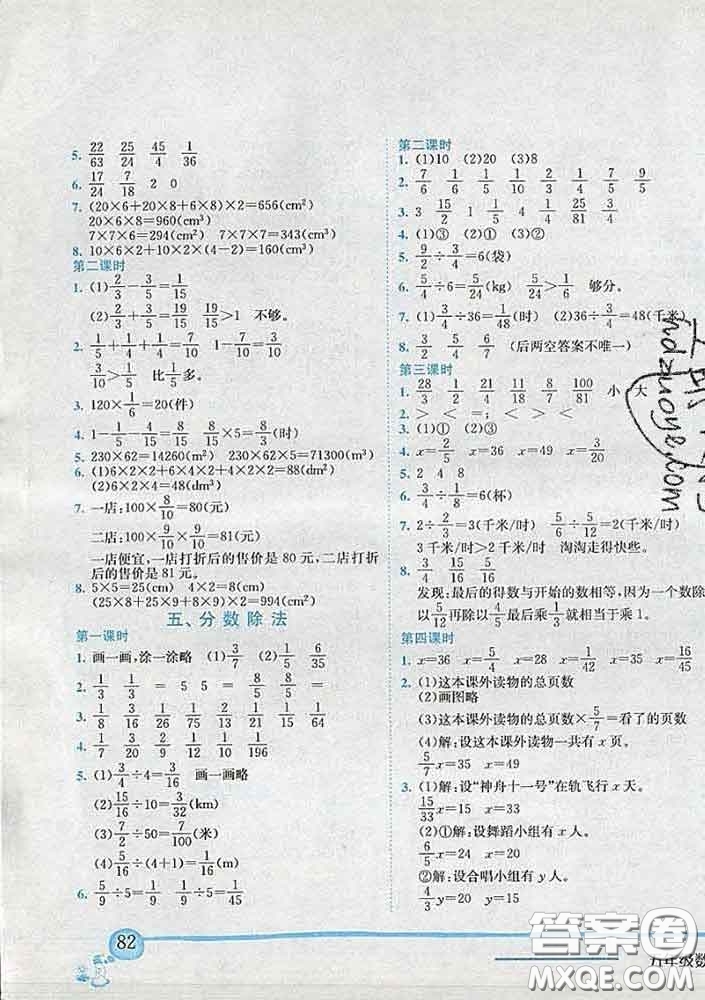 5. 22/63 25/24 45/4 1/36
6. 17/24 7/18 2 0
7. (20×6+20×8+6×8)×2=656(cm²)
20×6×8=960(cm³)
7×7×6=294(cm²) 7×7×7=343(cm³)
8. 10×6×2+10×2×(4−2)=160(cm³)
第二课时
1. (1)2/3−3/5=1/15
(2)2/3+3/5=19/15 19/15>1 不够。
2. 1/5+1/5+1/10=7/10 1−7/10=3/10
3/10>1/5 比1/5多。
3. 120×1/6=20(件)
4. 1−4/15−4/15=8/15 8/15×5=8/3(时)
5. 230×62=14260(m²) 230×62×5=71300(m³)
6. (1)6×2×2+6×4×2+4×2×2=88(dm²)
(2)6×2×4=48(dm³)
7. 一店:100×8/10=80(元)
二店:100×9/10×9/10=81(元)
一店便宜,一店打折后的售价是 80 元,二店打折
后的售价是 81 元。
8. 5×5=25(cm) 4×2=8(cm)
(25×8+25×9+8×9)×2=994(cm²)
五、分数除法
第一课时
1. 画一画,涂一涂略 (1)3/7 (2)1/5 6/35
2. 1/3 1/3 = 5 5 = 1/8 1/8 =
3. 1/8 3/16 1/26 1/75 2/13 1/21 1/15 1/64
4. 1/7 3/20 2/29 1/10 1/12 1/196
5. (1)3/4÷4=3/16 画一画略
(2)15/16÷10=3/32(km)
(3)7/2÷50=7/100(米)
(4)5/16÷(4+1)=1/16(m)
6. 5/9÷5=1/9 1/9÷5=1/45
82
第二课时
1. (1)10 (2)20 (3)8
2. 7/6 1/6 1/2 1/2 7/2 4/7 7/6 9/5
3. 3 15/2 1 1/5 4 1/4 25/3 81/4
4. (1)③ (2)① (3)②
5. 9/2÷3/4=6(袋)
6. 5/4÷6=5/24(kg) 5/24>1/6 够分。
7. (1)3/4÷36=1/48(时) (2)36÷3/4=48(千米)
8. 3/2 5/4 7/6 (后两空答案不唯一)
第三课时
1. 28/3 1/2 21/4 11/5 8/7 100/81 小 大
2. > < =; < > <
3. (1)① (2)③
4. x=2/5 x=36 x=49 x=4
5. 2 4 8
6. 3/4÷1/8=6(杯)
7. 2÷2/3=3(千米/时) 5/6÷5/12=2(千米/时)
3 千米/时>2 千米/时 淘淘走得快些。
8. 3/4 15/16 5/16
发现:最后的得数与开始的数相等,因为一个数除
以5/12再除以4/5最后乘1/3就等于乘 1。
第四课时
1. x=36 x=5/4 x=28 x=1/42 x=35 x=16/45
2. (1)这本课外读物的总页数
(2)画图略
(3)这本课外读物的总页数×5/7=看了的页数
(4)解:设这本课外读物一共有 x 页。
5/7x=35 x=49
3. (1)解:设“神舟十一号”在轨飞行 x 天。
15/33x=15 x=33
(2)①解:设舞蹈小组有 x 人。
6/5x=24 x=20
②解:设合唱小组有 y 人。
4/3y=20 y=15
hdzuoye.com
答案圈
MXQE.COM
五年级数